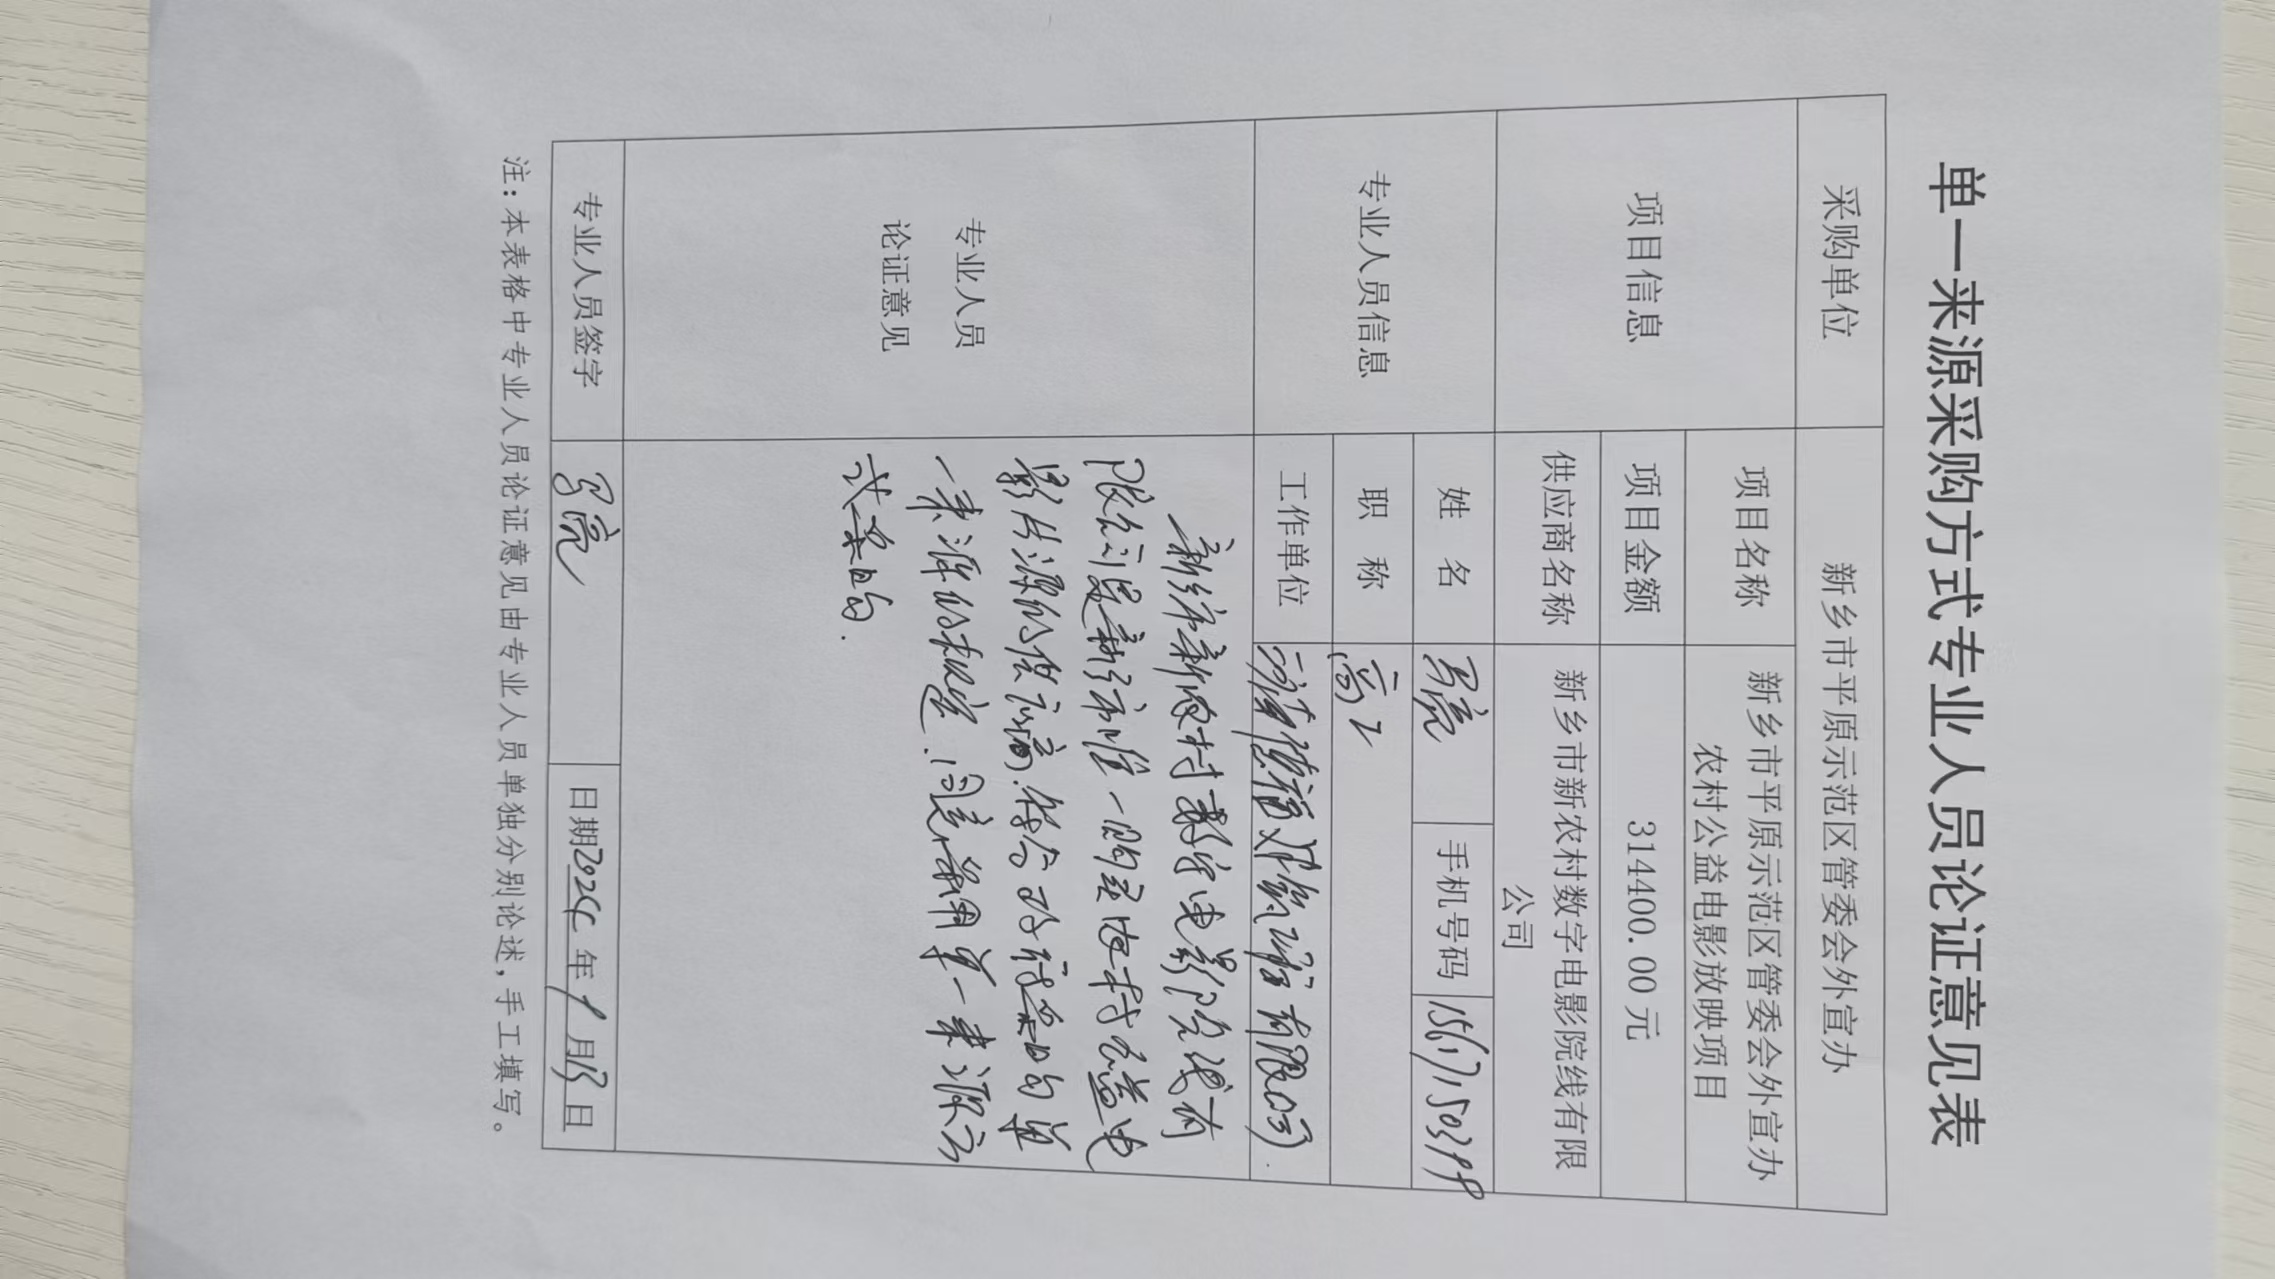 单一来源采购方式专业人员论证意见表
采购单位 新乡市平原示范区管委会外宣办
项目信息 项目名称 新乡市平原示范区管委会外宣办
农村公益电影放映项目
项目金额 314400.00 元
供应商名称 新乡市新农村数字电影院线有限
公司
专业人员信息 姓 名 亮 手机号码
职 称 高工
工作单位 有限公司.
专业人员
论证意见
新乡市新农村数字电影院线有
限公司是新乡市唯一的农村公益电
影片源的供应商.符合政府采购单
一来源的规定.同意采用单一来源方
式采购.
专业人员签字 亮 日期 年1月 日
注：本表格中专业人员论证意见由专业人员单独分别论述，手工填写。